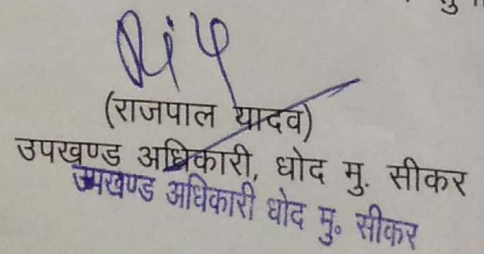 (राजपाल यादव)
उपखण्ड अधिकारी, धोद मु. सीकर
उपखण्ड अधिकारी धोद मु० सीकर